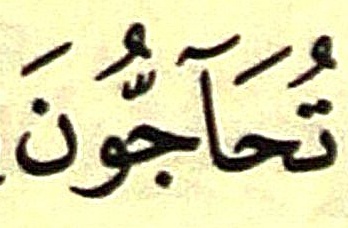 تُحَآجُّونَ